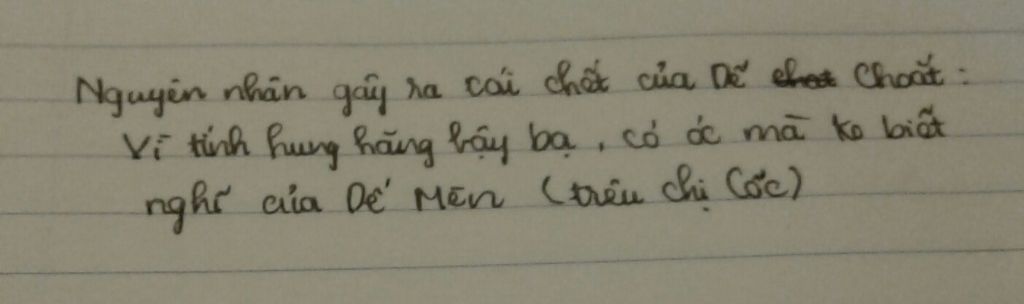 Nguyên nhân gây ra cái chết của Dế Choắt :
Vì tính hung hăng bậy bạ, có óc mà ko biết
nghĩ của Dế Mèn (trêu chị Cốc)